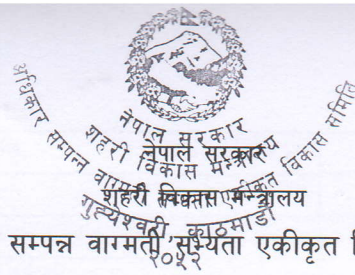 नेपाल सरकार
शहरी विकास मन्त्रालय
अधिकार सम्पन्न वाग्मती सभ्यता एकीकृत विकास समिति
गुह्येश्वरी, काठमाडौं
२०५२
नेपाल सरकार
शहरी विकास मन्त्रालय
सम्पन्न वाग्मती सभ्यता एकीकृत